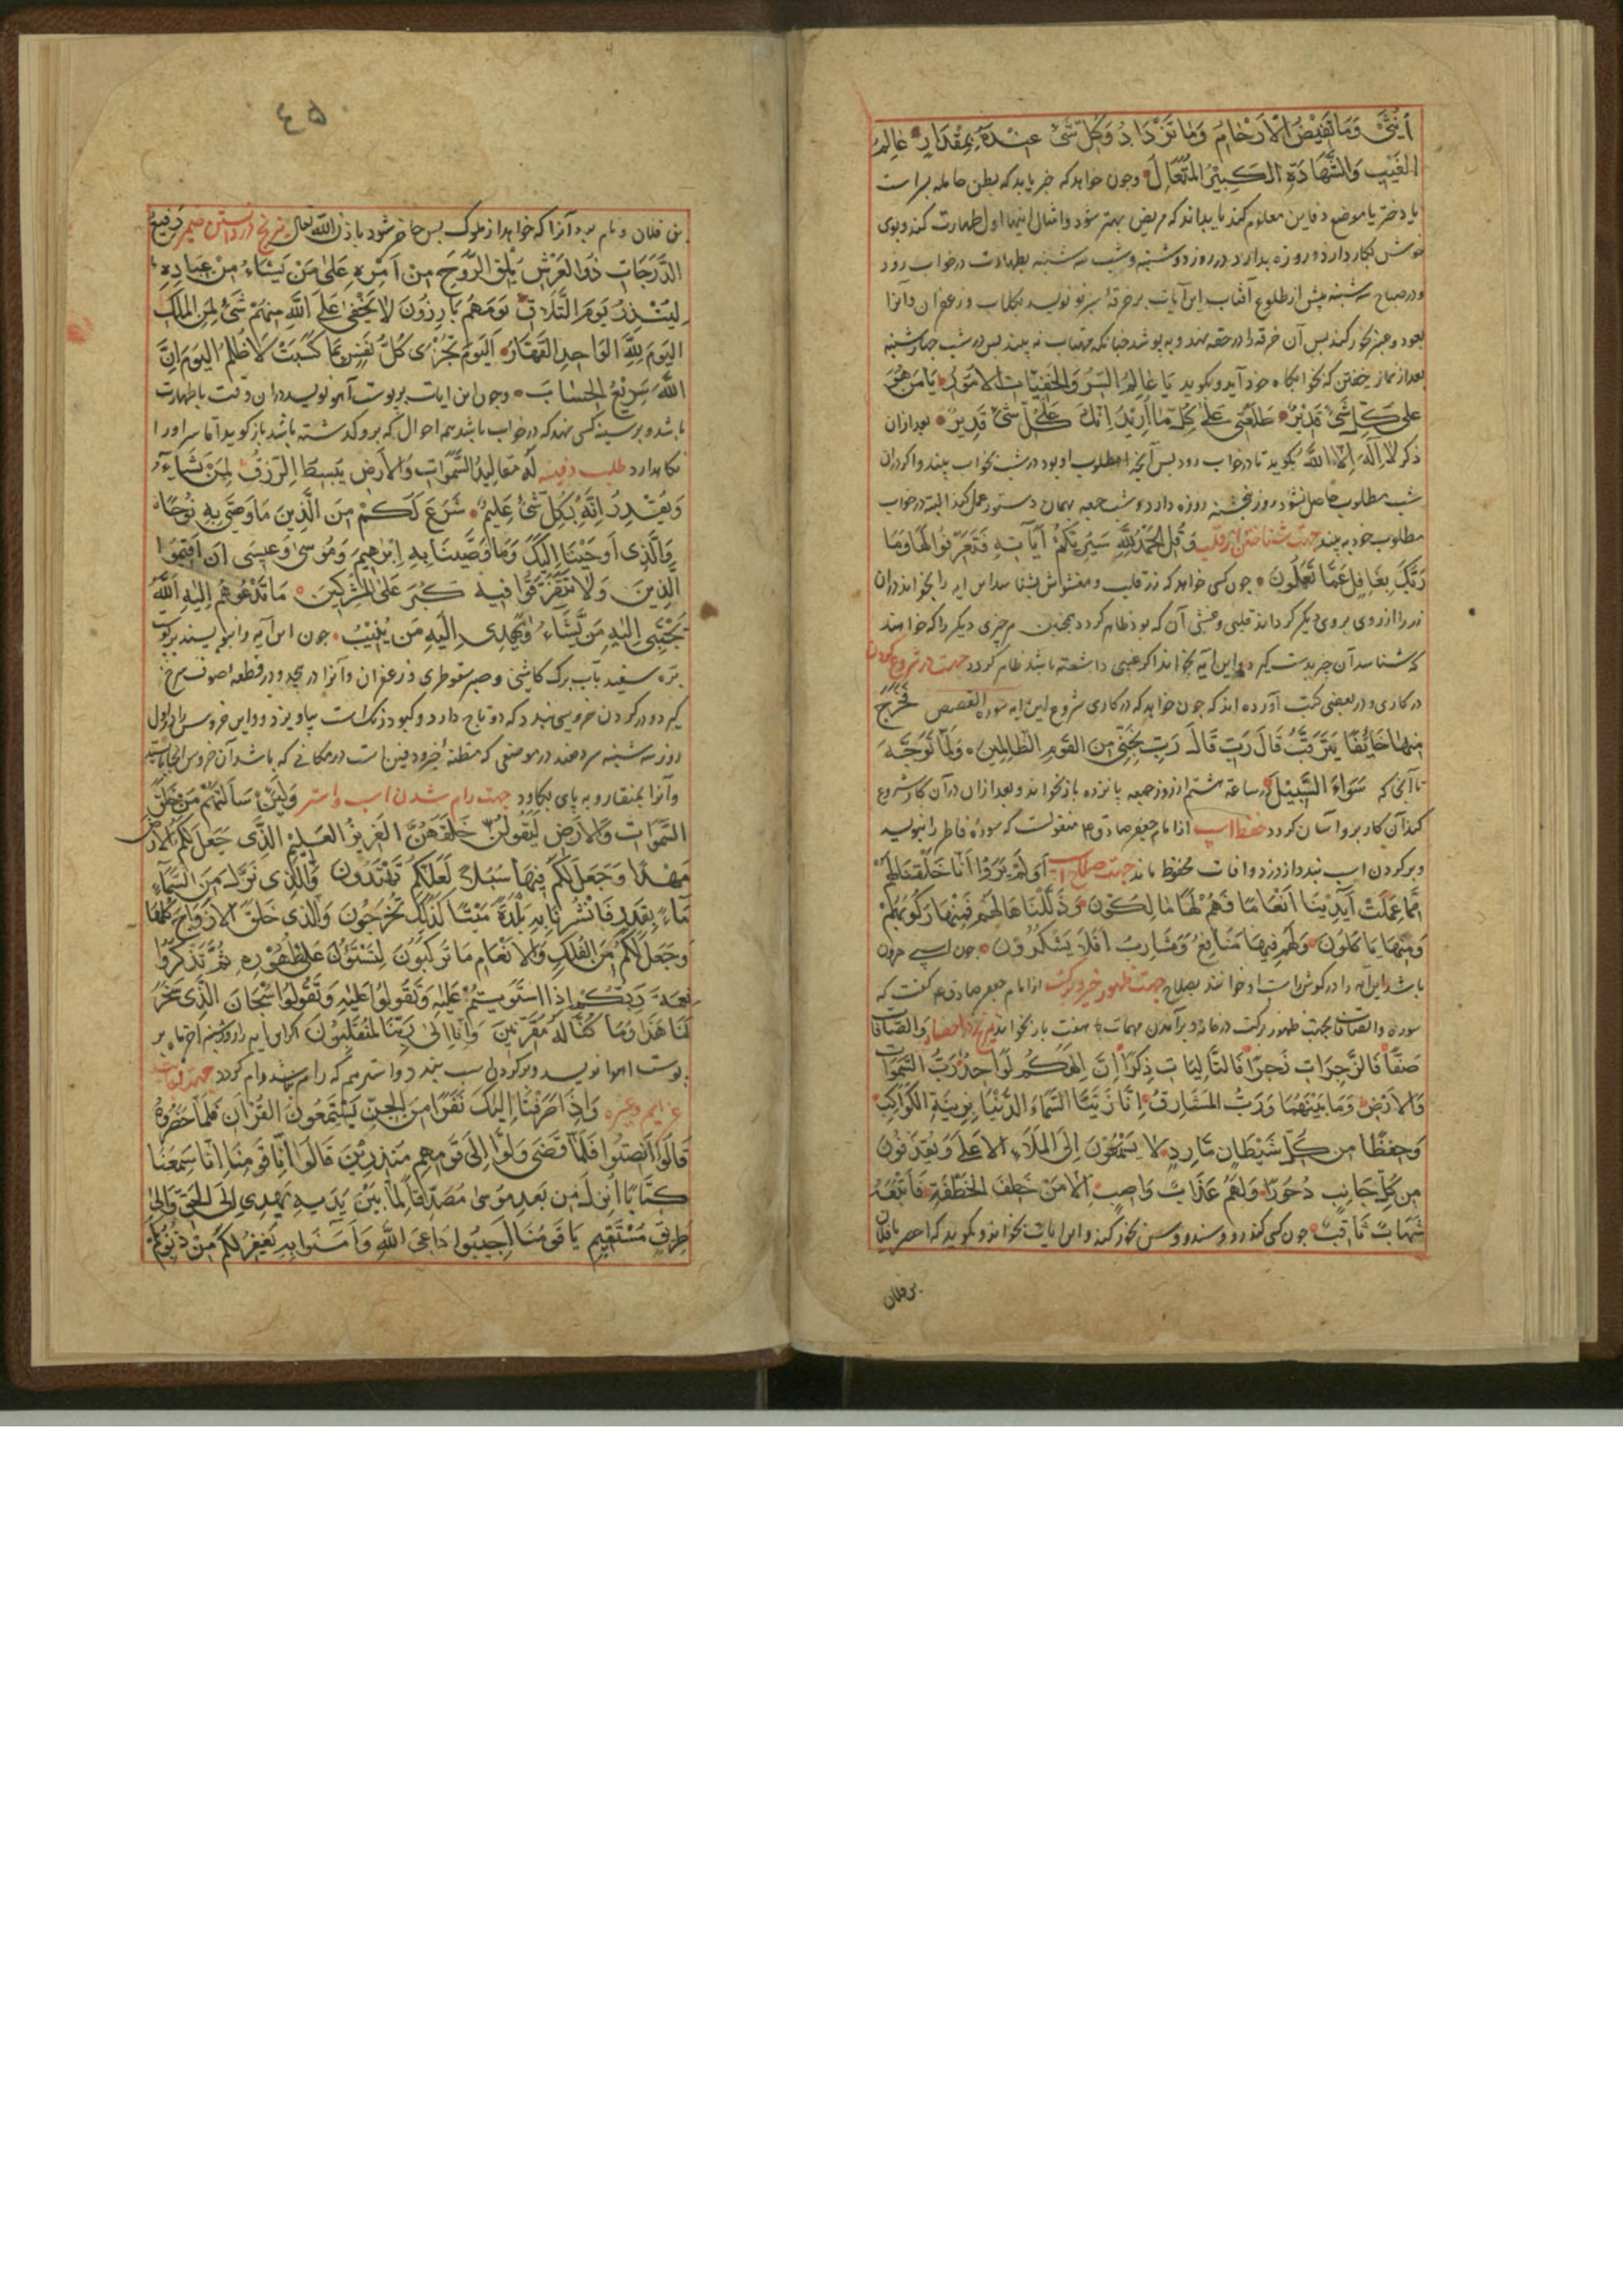 اُنْثٰى وَمَا تَغِيْضُ الْاَرْحَامُ وَمَا تَزْدَادُ وَكُلُّ شَىْءٍ عِنْدَهُ بِمِقْدَارٍ عَالِمُ
الغَيْبِ وَالشَّهَادَةِ الْكَبِيْرُ الْمُتَعَالِ وچون خواهد که خبر یابد که بطن حامله پسر است
یا دختر یا موضع دفاین معلوم کند یا بداند که مریض بهتر شود وامثال اینها اول طهارت کند وبوی
خوش بکار دارد وروزه بدارد در روز دوشنبه وشب سه شنبه بطهارت در خواب رود
ودر صباح سه شنبه پیش از طلوع آفتاب این آیات بر خرقهٔ سبز نو نویسد بکلاب وزعفران وآنرا
بعود وعنبر بخور کند پس آن خرقه را در حقه نهد وبپوشد چنانکه آفتاب نه بیند پس در شب چهارشنبه
بعد از نماز خفتن که بخوابگاه خود آید وبگوید يَا عَالِمَ السِّرِّ وَالْخَفِيَّاتِ الْاُمُوْرِ يَا مَنْ هُوَ
عَلٰى كُلِّ شَىْءٍ قَدِيْرٌ طَلِّعْنِى عَلٰى كُلِّ مَا اُرِيْدُ اِنَّكَ عَلٰى كُلِّ شَىْءٍ قَدِيْرٌ بعد ازان
ذکر لا اله الا الله بگوید تا در خواب رود پس آنچه مطلوب او بود در شب بخواب بیند واکر دران
شب مطلوب حاصل نشود روز پنجشنبه روزه دارد وشب جمعه بهمان دستور عمل کند البته در خواب
مطلوب خود به بیند جهت شناختن زر قلب وَقُلِ الْحَمْدُ لِلّٰهِ سَيُرِيْكُمْ اٰيَاتِهِ فَتَعْرِفُوْنَهَا وَمَا
رَبُّكَ بِغَافِلٍ عَمَّا تَعْمَلُوْنَ چون کسی خواهد که زر قلب ومغشوش بشناسد این آیه را بخواند دران
زر را از روی بروی دیگر کرداند قلبی وغشی آن که بود ظاهر کردد همچنین هر چیزی دیگر را که خواهند
که شناسد آن چیز بدست کیرد واین آیه بخواند اگر عیبی داشته باشد ظاهر کردد جهت در شروع کردن
در کاری ودر بعضی کتب آورده اند که چون خواهد که در کاری شروع این آیه سوره القصص فَخَرَجَ
مِنْهَا خَائِفًا يَتَرَقَّبُ قَالَ رَبِّ قَالَ رَبِّ نَجِّنِى مِنَ الْقَوْمِ الظَّالِمِيْنَ وَلَمَّا تَوَجَّهَ
تا آنجا که سَوَاءَ السَّبِيْلِ در ساعة هشتم از روز جمعه پانزده بار بخواند وبعد ازان در آن کار شروع
کند آن کار بر وآسان کردد حفظ اسپ از امام جعفر صادق ع منقولست که سوره فاطر را بنویسد
وبر کردن اسپ بندد از دزد وافات محفوظ ماند جهت صلاح اسپ اَوَلَمْ يَرَوْا اَنَّا خَلَقْنَا لَهُمْ
مِمَّا عَمِلَتْ اَيْدِيْنَا اَنْعَامًا فَهُمْ لَهَا مَالِكُوْنَ وَذَلَّلْنَاهَا لَهُمْ فَمِنْهَا رَكُوْبُهُمْ
وَمِنْهَا يَاْكُلُوْنَ وَلَهُمْ فِيْهَا مَنَافِعُ وَمَشَارِبُ اَفَلَا يَشْكُرُوْنَ چون اسپی حرون
باشد این آیه را در کوش راست او خوانند بصلاح جهت ظهور خیر وبرکت از امام جعفر صادق ع کفت که
سوره والصافات بجهت ظهور برکت در خانه وبرآمدن مهمات هفت بار بخواند در احضار وَالصَّافَّاتِ
صَفًّا فَالزَّاجِرَاتِ زَجْرًا فَالتَّالِيَاتِ ذِكْرًا اِنَّ اِلٰهَكُمْ لَوَاحِدٌ رَبُّ السَّمٰوَاتِ
وَالْاَرْضِ وَمَا بَيْنَهُمَا وَرَبُّ الْمَشَارِقِ اِنَّا زَيَّنَّا السَّمَاءَ الدُّنْيَا بِزِيْنَةِ الْكَوَاكِبِ
وَحِفْظًا مِنْ كُلِّ شَيْطَانٍ مَّارِدٍ لَا يَسَّمَّعُوْنَ اِلَى الْمَلَاِ الْاَعْلٰى وَيُقْذَفُوْنَ
مِنْ كُلِّ جَانِبٍ دُحُوْرًا وَلَهُمْ عَذَابٌ وَاصِبٌ اِلَّا مَنْ خَطِفَ الْخَطْفَةَ فَاَتْبَعَهُ
شِهَابٌ ثَاقِبٌ چون کسی کندر وسندروس بخور کند واین آیات بخواند وبگوید که احضر یا فلان
بن فلان
٤٥
بن فلان ونام برد آنرا که خواهد از ملوک پس حاضر شود باذن الله تعالی در دانستن ضمیر رَفِيْعُ
الدَّرَجَاتِ ذُو الْعَرْشِ يُلْقِى الرُّوْحَ مِنْ اَمْرِهِ عَلٰى مَنْ يَشَاءُ مِنْ عِبَادِهِ
لِيُنْذِرَ يَوْمَ التَّلَاقِ يَوْمَ هُمْ بَارِزُوْنَ لَا يَخْفٰى عَلَى اللّٰهِ مِنْهُمْ شَىْءٌ لِمَنِ الْمُلْكُ
الْيَوْمَ لِلّٰهِ الْوَاحِدِ الْقَهَّارِ اَلْيَوْمَ تُجْزٰى كُلُّ نَفْسٍ بِمَا كَسَبَتْ لَا ظُلْمَ الْيَوْمَ اِنَّ
اللّٰهَ سَرِيْعُ الْحِسَابِ وچون این ایات بر پوست آهو نویسد دران وقت باطهارت
باشد وبر سینه کسی نهد که در خواب باشد همه احوال که برو کذشته باشد باز کوید اما سر او را
نکاهدارد طلب دفینه لَهُ مَقَالِيْدُ السَّمٰوَاتِ وَالْاَرْضِ يَبْسُطُ الرِّزْقَ لِمَنْ يَشَاءُ
وَيَقْدِرُ اِنَّهُ بِكُلِّ شَىْءٍ عَلِيْمٌ شَرَعَ لَكُمْ مِنَ الَّذِيْنَ مَا وَصّٰى بِهِ نُوْحًا
وَالَّذِى اَوْحَيْنَا اِلَيْكَ وَمَا وَصَّيْنَا بِهِ اِبْرٰهِيْمَ وَمُوْسٰى وَعِيْسٰى اَنْ اَقِيْمُوا
الَّذِيْنَ وَلَا تَتَفَرَّقُوْا فِيْهِ كَبُرَ عَلَى الْمُشْرِكِيْنَ مَا تَدْعُوْهُمْ اِلَيْهِ اَللّٰهُ
يَجْتَبِى اِلَيْهِ مَنْ يَّشَاءُ وَيَهْدِى اِلَيْهِ مَنْ يُنِيْبُ چون این آیه را بنویسند بر پوست
بره سفید بآب برک کاشنی وصبر سقوطری وزعفران وآنرا در پیچد ودر قطعه صوف سرخ
کیرد ودر کردن خروسی بندد که دو تاج دارد وکبود رنک است بیاویزد واین خروس را در اول
روز سه شنبه سر دهند در موضعی که مظنهٔ دفین است در مکانی که باشد آن خروس انجا بایستد
وآنرا بمنقار وبه پای بکاود جهت رام شدن اسب واستر وَلَئِنْ سَاَلْتَهُمْ مَنْ خَلَقَ
السَّمٰوَاتِ وَالْاَرْضَ لَيَقُوْلُنَّ خَلَقَهُنَّ الْعَزِيْزُ الْعَلِيْمُ الَّذِى جَعَلَ لَكُمُ الْاَرْضَ
مَهْدًا وَجَعَلَ لَكُمْ فِيْهَا سُبُلًا لَعَلَّكُمْ تَهْتَدُوْنَ وَالَّذِى نَزَّلَ مِنَ السَّمَاءِ
مَاءً بِقَدَرٍ فَاَنْشَرْنَا بِهِ بَلْدَةً مَيْتًا كَذٰلِكَ تُخْرَجُوْنَ وَالَّذِى خَلَقَ الْاَزْوَاجَ كُلَّهَا
وَجَعَلَ لَكُمْ مِنَ الْفُلْكِ وَالْاَنْعَامِ مَا تَرْكَبُوْنَ لِتَسْتَوُوا عَلٰى ظُهُوْرِهِ ثُمَّ تَذْكُرُوْا
نِعْمَةَ رَبِّكُمْ اِذَا اسْتَوَيْتُمْ عَلَيْهِ وَتَقُوْلُوْا عَلَيْهِ وَتَقُوْلُوْا سُبْحَانَ الَّذِى سَخَّرَ
لَنَا هٰذَا وَمَا كُنَّا لَهُ مُقْرِنِيْنَ وَاِنَّا اِلٰى رَبِّنَا لَمُنْقَلِبُوْنَ اکر این آیه را روز شنبه آخر ماه بر
پوست اهو نویسد وبر کردن اسب بندد واستر هم که رام نباشد رام کردد جهت
عزایم وغیره وَاِذَا صَرَفْنَا اِلَيْكَ نَفَرًا مِنَ الْجِنِّ يَسْتَمِعُوْنَ الْقُرْاٰنَ فَلَمَّا حَضَرُوْهُ
قَالُوْا اَنْصِتُوْا فَلَمَّا قُضِىَ وَلَّوْا اِلٰى قَوْمِهِمْ مُنْذِرِيْنَ قَالُوْا يَا قَوْمَنَا اِنَّا سَمِعْنَا
كِتَابًا اُنْزِلَ مِنْ بَعْدِ مُوْسٰى مُصَدِّقًا لِمَا بَيْنَ يَدَيْهِ يَهْدِى اِلَى الْحَقِّ وَاِلٰى
طَرِيْقٍ مُسْتَقِيْمٍ يَا قَوْمَنَا اَجِيْبُوا دَاعِىَ اللّٰهِ وَاٰمِنُوا بِهِ يَغْفِرْ لَكُمْ مِنْ ذُنُوْبِكُمْ